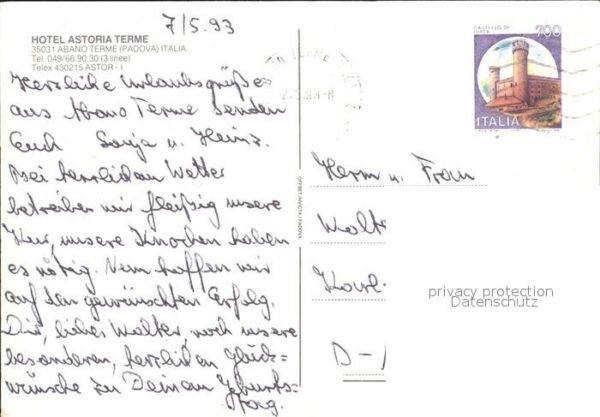 7/5.93
HOTEL ASTORIA TERME
35031 ABANO TERME (PADOVA) ITALIA
Tel. 049/66.90.30 (3 linee)
Telex 430215 ASTOR - I
Herzliche Urlaubsgrüße
aus Abano Terme senden
Euch Sonja u. Heinz.
Bei herrlichem Wetter
betreiben wir fleißig unsere
Kur, unsere Knochen haben
es nötig. Nun hoffen wir
auf den gewünschten Erfolg.
Dir, lieber Walter, noch unsere
besonderen, herzlichen Glück=
wünsche zu Deinem Geburts-
tag.
OFFSET INVICTA / PADOVA
CASTELLO DI
IVREA
700
ITALIA
Herrn u. Frau
Walt
Karl-
D-
privacy protection
Datenschutz